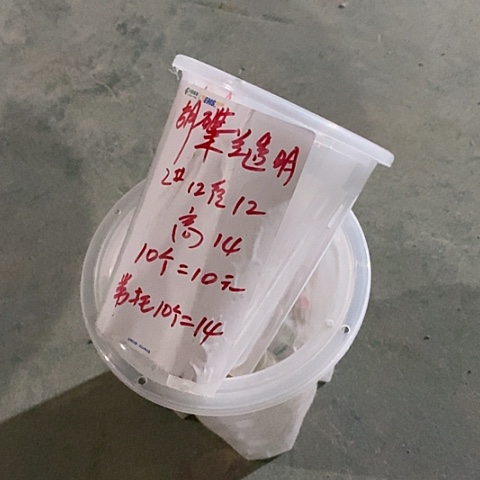 胡蝶兰透明
2# 12宽 12
高 14
10个=10元
带托10个=14